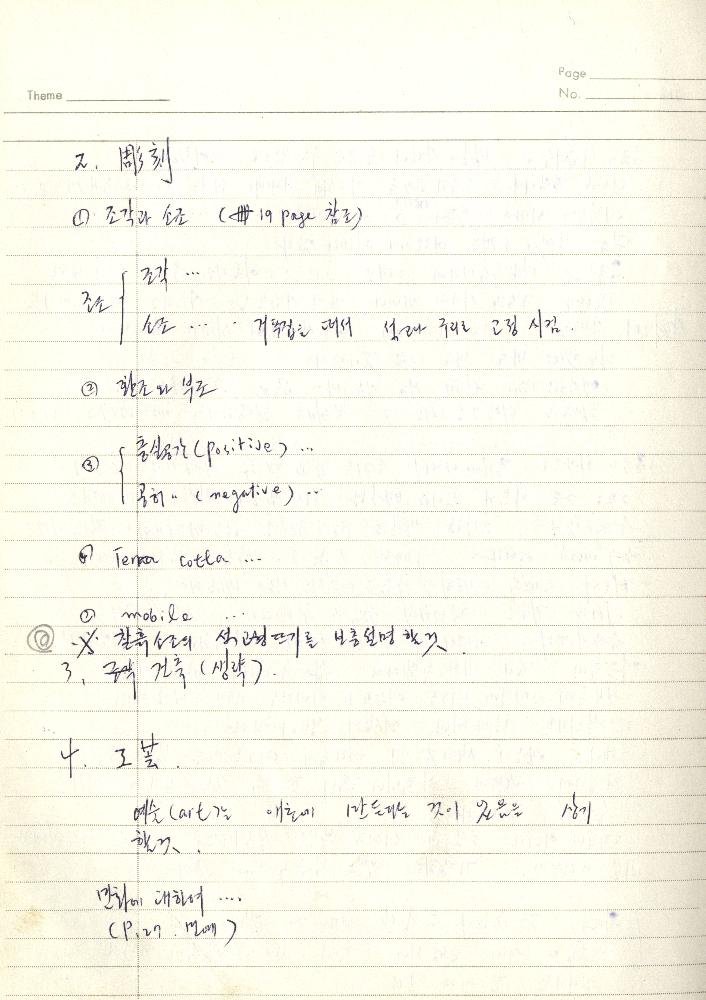 Page
Theme
No.
2. 彫刻
① 조각과 소조 (19 page 참조)
조소
조각 ...
소조 ... 거푸집을 떠서 석고나 구리로 고정시킴.
② 환조와 부조
③
충실공간 (positive) ...
공허 〃 (negative) ...
④ Terra cotta ...
⑤ mobile ...
찰흙소조의 석고형뜨기를 보충설명할것.
3. 건축 (생략).
4. 工芸.
예술(art)는 애초에 만든다는 것이 있음을 상기
할것.
민화에 대하여 ....
(P.27. 민예)